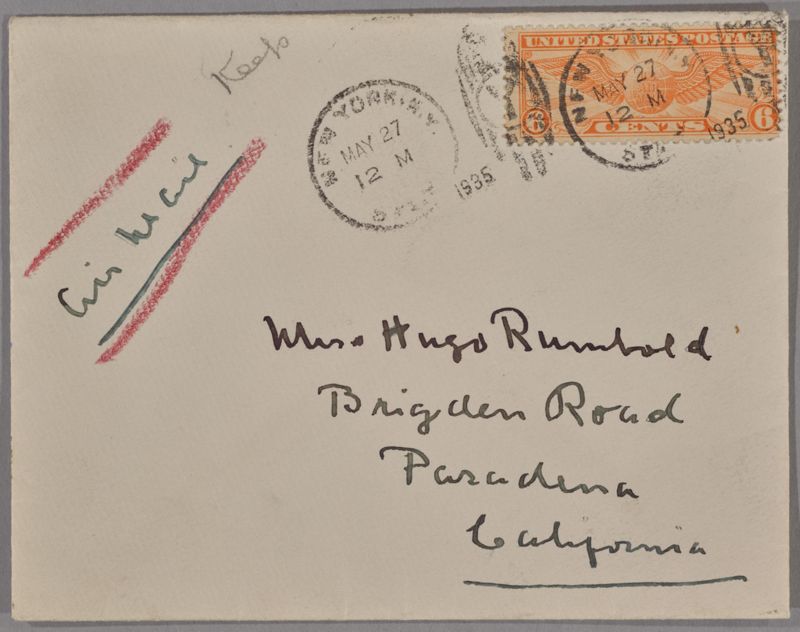 Keep
Air Mail
NEW YORK, N.Y.
MAY 27
12 M
1935
STA
UNITED STATES POSTAGE
6 CENTS 6
NEW YORK, N.Y.
MAY 27
12 M
1935
STA
Miss Hugo Rumbold
Brigden Road
Pasadena
California